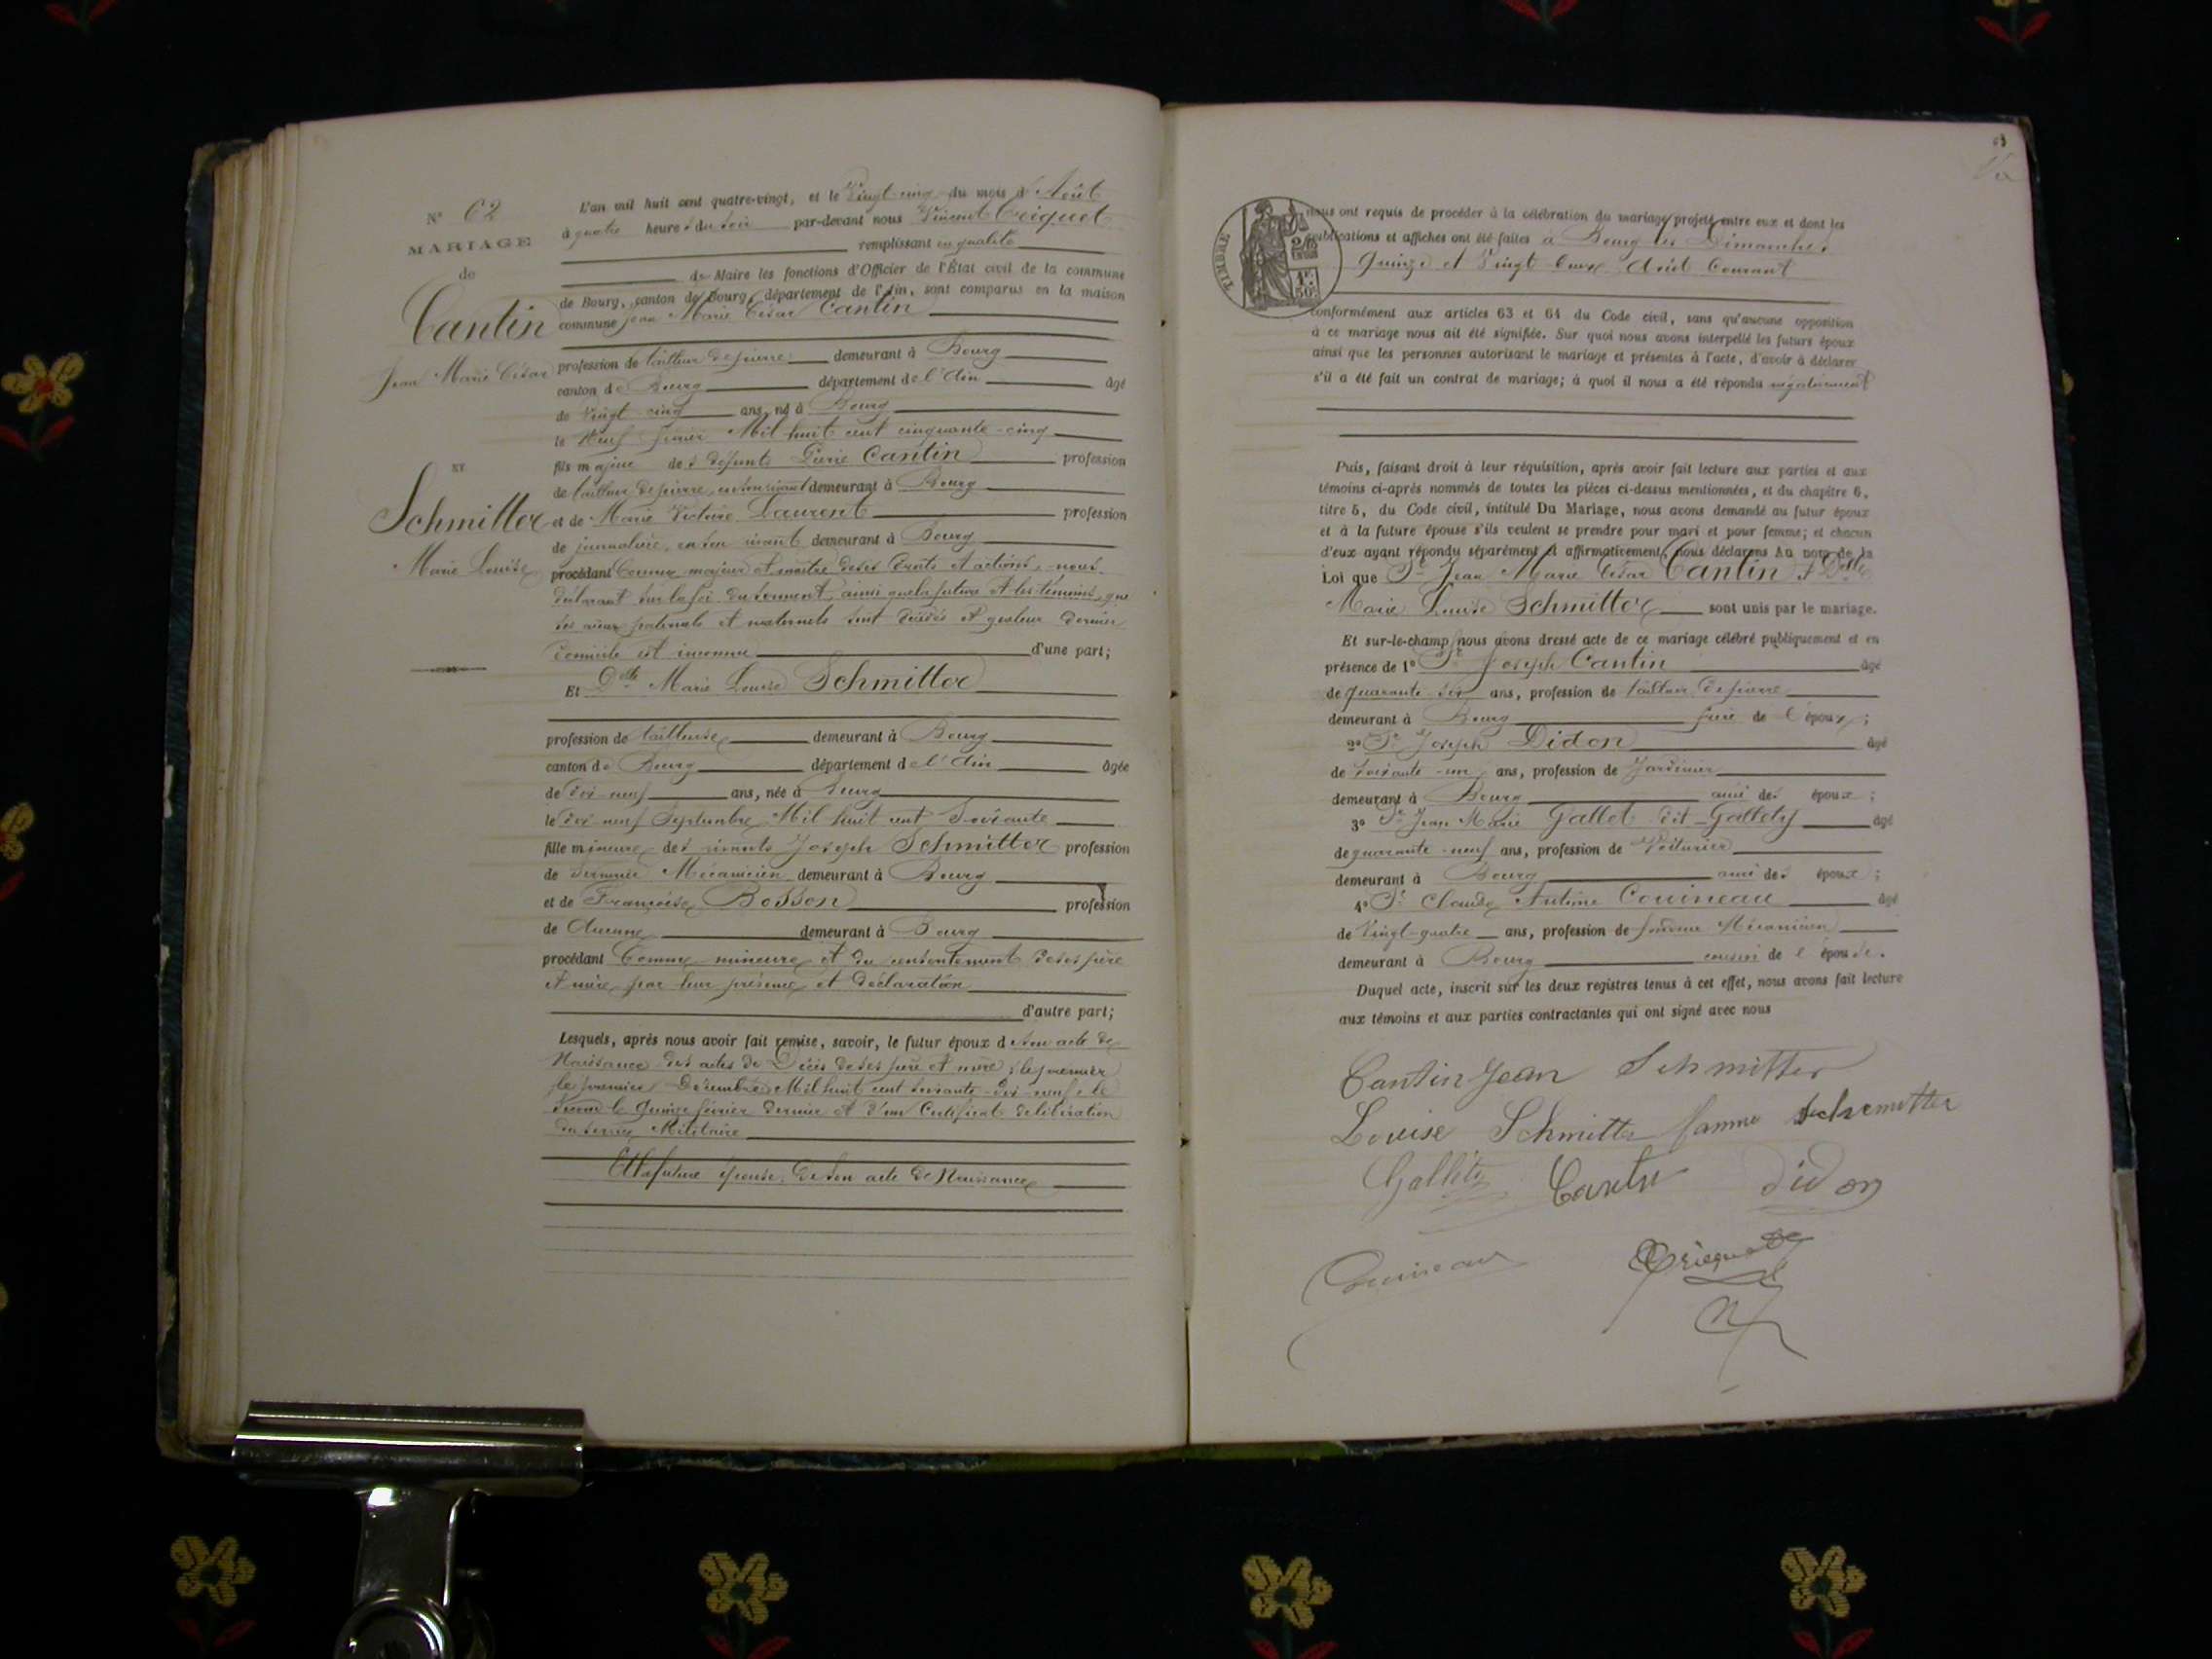 N° 62
MARIAGE
de
Cantin
Jean Marie César
ET
Schmitter
Marie Louise
L'an mil huit cent quatre-vingt, et le Vingt-cinq du mois d'Août
à quatre heures du soir par-devant nous Vincent
remplissant en qualité
de Maire les fonctions d'Officier de l'État civil de la commune
de Bourg, canton de Bourg, département de l'Ain, sont comparus en la maison
commune Jean Marie César Cantin
profession de tailleur de pierre demeurant à Bourg
canton de Bourg département de l'Ain âgé
de Vingt cinq ans, né à Bourg
le Neuf Mil huit cent cinquante-cinq
fils majeur des défunts Pierre Cantin profession
de tailleur de pierre, en son vivant demeurant à Bourg
et de Marie Victoire Laurent profession
de journalière, en son vivant demeurant à Bourg
procédant Comme majeur et maître de ses droits et actions, nous
déclarant sur la foi du serment, ainsi que la future et les témoins, que
ses aïeux paternels et maternels sont décédés et que leur dernier
domicile est inconnu d'une part;
Et Dlle Marie Louise Schmitter
profession de tailleuse demeurant à Bourg
canton de Bourg département de l'Ain âgée
de dix-neuf ans, née à Bourg
le dix-neuf Septembre Mil huit cent Soixante
fille mineure des vivants Joseph Schmitter profession
de Serrurier Mécanicien demeurant à Bourg
et de Françoise Bosson profession
de Aucune demeurant à Bourg
procédant Comme mineure et du consentement de ses père
et mère par leur présence et déclaration
d'autre part;
Lesquels, après nous avoir fait remise, savoir, le futur époux de son acte de
Naissance des actes de Décès de ses père et mère, le premier
le premier Décembre Mil huit cent soixante-dix-neuf, le
second le Quinze février dernier et d'un Certificat de libération
du service Militaire
Et la future épouse, de son acte de Naissance
63
TIMBRE
nous ont requis de procéder à la célébration du mariage projeté entre eux et dont les
publications et affiches ont été faites à Bourg les Dimanches
Quinze et Vingt Deux Août Courant
conformément aux articles 63 et 64 du Code civil, sans qu'aucune opposition
à ce mariage nous ait été signifiée. Sur quoi nous avons interpellé les futurs époux
ainsi que les personnes autorisant le mariage et présentes à l'acte, d'avoir à déclarer
s'il a été fait un contrat de mariage; à quoi il nous a été répondu négativement
Puis, faisant droit à leur réquisition, après avoir fait lecture aux parties et aux
témoins ci-après nommés de toutes les pièces ci-dessus mentionnées, et du chapitre 6,
titre 5, du Code civil, intitulé Du Mariage, nous avons demandé au futur époux
et à la future épouse s'ils veulent se prendre pour mari et pour femme; et chacun
d'eux ayant répondu séparément et affirmativement, nous déclarons Au nom de la
Loi que Sr Jean Marie César Cantin et Dlle
Marie Louise Schmitter sont unis par le mariage.
Et sur-le-champ nous avons dressé acte de ce mariage célébré publiquement et en
présence de 1° Sr Joseph Cantin âgé
de quarante-six ans, profession de tailleur de pierre
demeurant à Bourg frère de l'époux;
2° Sr Joseph Didon âgé
de soixante-un ans, profession de Jardinier
demeurant à Bourg ami des époux;
3° Sr Jean Marie Gallet dit Gallety âgé
de quarante-neuf ans, profession de Voiturier
demeurant à Bourg ami des époux;
4° Sr Claude Antime Couineau âgé
de Vingt-quatre ans, profession de fondeur Mécanicien
demeurant à Bourg cousin de l'épouse.
Duquel acte, inscrit sur les deux registres tenus à cet effet, nous avons fait lecture
aux témoins et aux parties contractantes qui ont signé avec nous
Cantin Jean Schmitter
Louise Schmitter famme Schemitter
Cantin Didon
Couineau